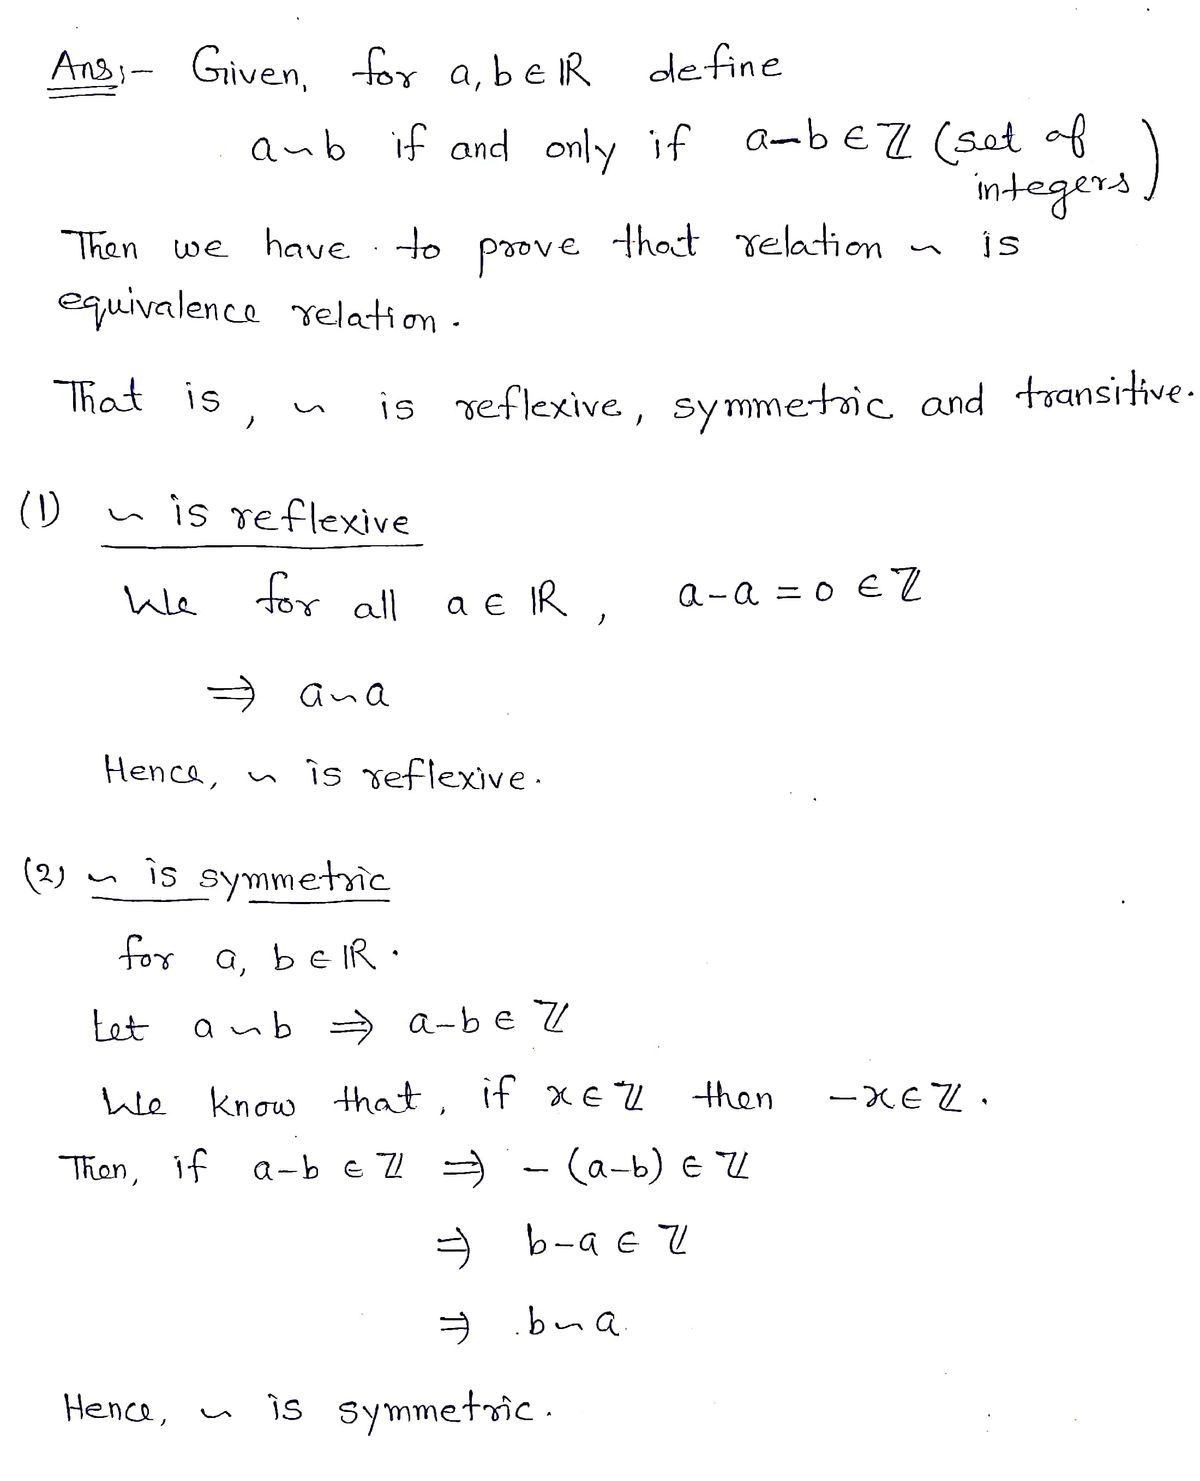 Ans:- Given, for a, b ∈ ℝ define
a ~ b if and only if a-b ∈ ℤ (set of integers)
Then we have to prove that relation ~ is
equivalence relation.
That is, ~ is reflexive, symmetric and transitive.
(1) ~ is reflexive
We for all a ∈ ℝ, a-a = 0 ∈ ℤ
⇒ a ~ a
Hence, ~ is reflexive.
(2) ~ is symmetric
for a, b ∈ ℝ.
Let a ~ b ⇒ a-b ∈ ℤ
We know that, if x ∈ ℤ then -x ∈ ℤ.
Then, if a-b ∈ ℤ ⇒ -(a-b) ∈ ℤ
⇒ b-a ∈ ℤ
⇒ b ~ a.
Hence, ~ is symmetric.